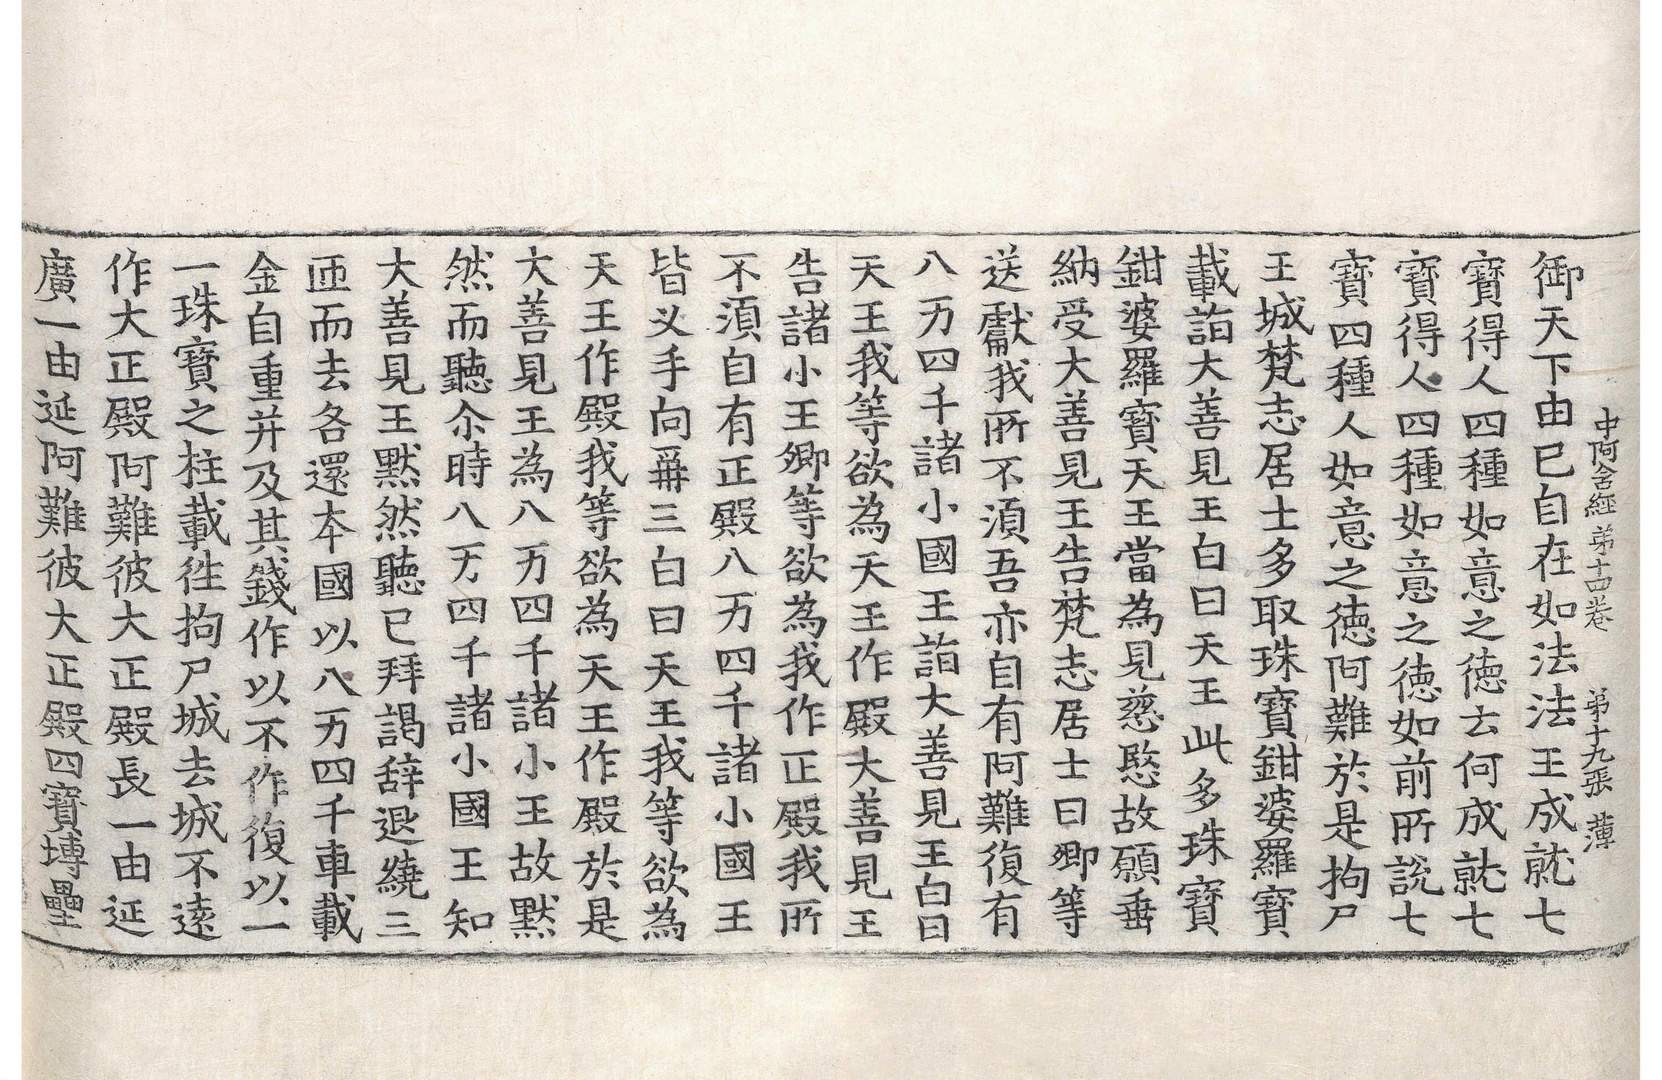 中阿含經第十四卷 第十九張 薄
御天下由已自在如法法王成就七
寶得人四種如意之德云何成就七
寶得人四種如意之德如前所說七
寶四種人如意之德阿難於是拘尸
王城梵志居士多取珠寶鉗婆羅寶
載詣大善見王白曰天王此多珠寶
鉗婆羅寶天王當為見慈愍故願垂
納受大善見王告梵志居士曰卿等
送獻我所不須吾亦自有阿難復有
八万四千諸小國王詣大善見王白曰
天王我等欲為天王作殿大善見王
告諸小王卿等欲為我作正殿我所
不須自有正殿八万四千諸小國王
皆叉手向再三白曰天王我等欲為
天王作殿我等欲為天王作殿於是
大善見王為八万四千諸小王故默
然而聽尒時八万四千諸小國王知
大善見王默然聽已拜謁辞退繞三
匝而去各還本國以八万四千車載
金自重并及其錢作以不作復以一
一珠寶之柱載徃拘尸城去城不遠
作大正殿阿難彼大正殿長一由延
廣一由延阿難彼大正殿四寶塼壘